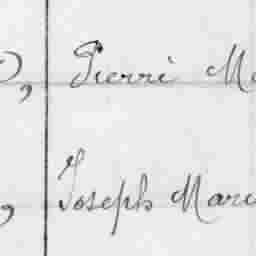 , Pierre M
, Joseph Marc